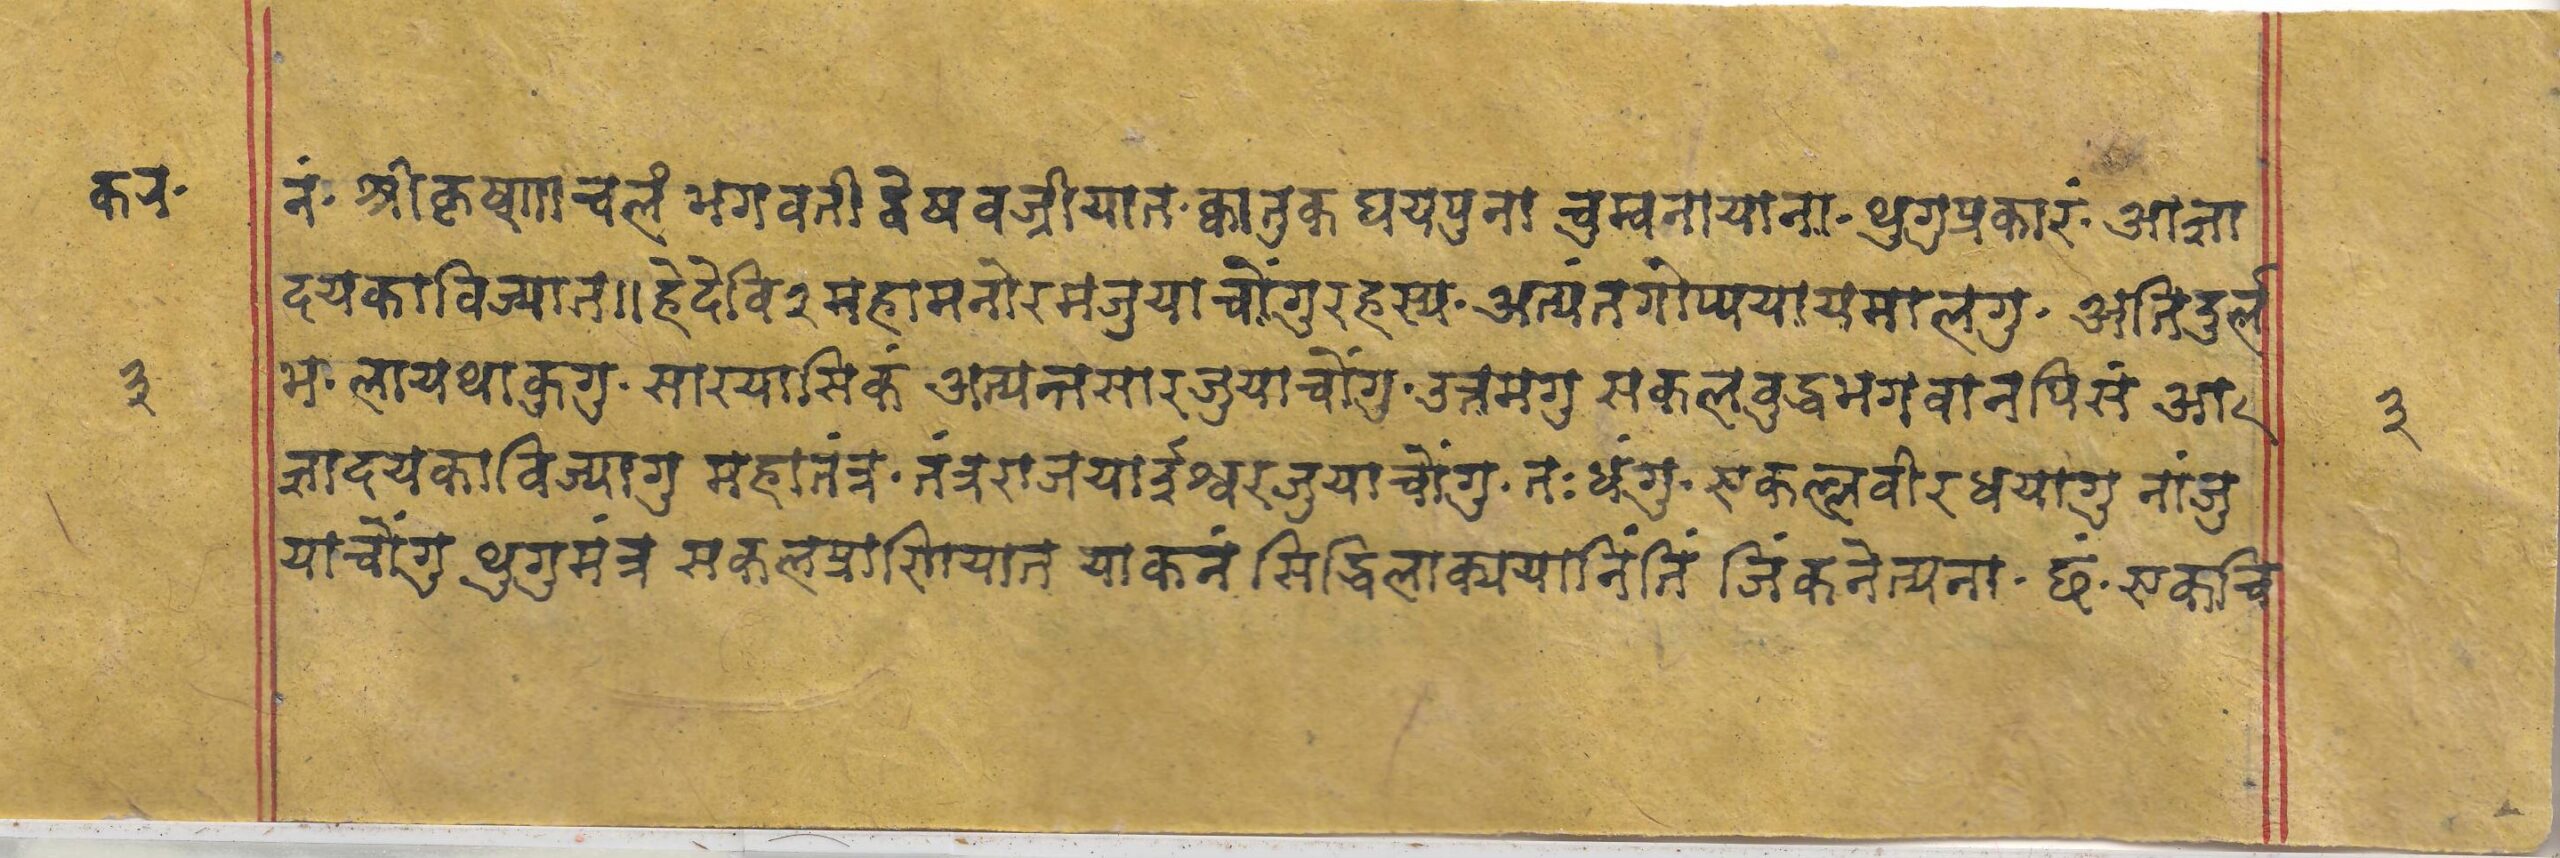 कर॰
नं॰ श्रीकृष्णाचलं भगवती द्वेषवज्रीयात॰ क्वातुक घयपुना चुम्वनायाना॰ थुगुप्रकारं॰ आज्ञा
दयकाविज्यात॥ हेदेवि२ महामनोरमजुयाचोंगु रहस्य॰ अत्यंतगोप्ययायमालगु॰ अतिदुर्ल
भ॰ लायथाकुगु॰ सारयासिकं अत्यन्तसारजुयाचोंगु॰ उत्तमगु सकलवुद्धभगवानपिसं आ
३
३
ज्ञादयकाविज्यागु महातंत्र॰ तंत्रराजयाईश्वरजुयाचोंगु॰ तःधंगु॰ एकल्लवीरधयागु नांजु
याचोंगु थुगुमंत्र सकलप्राणियात याकनं सिद्धिलाक्ययानिंतिं जिंकनेत्यना॰ छं॰ एकचि